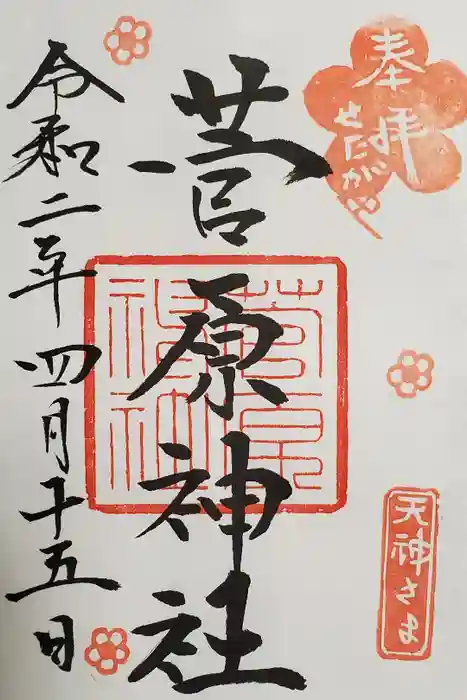 奉拝
せたがや
天神さま
菅原神社
菅原神社
令和二年四月十五日